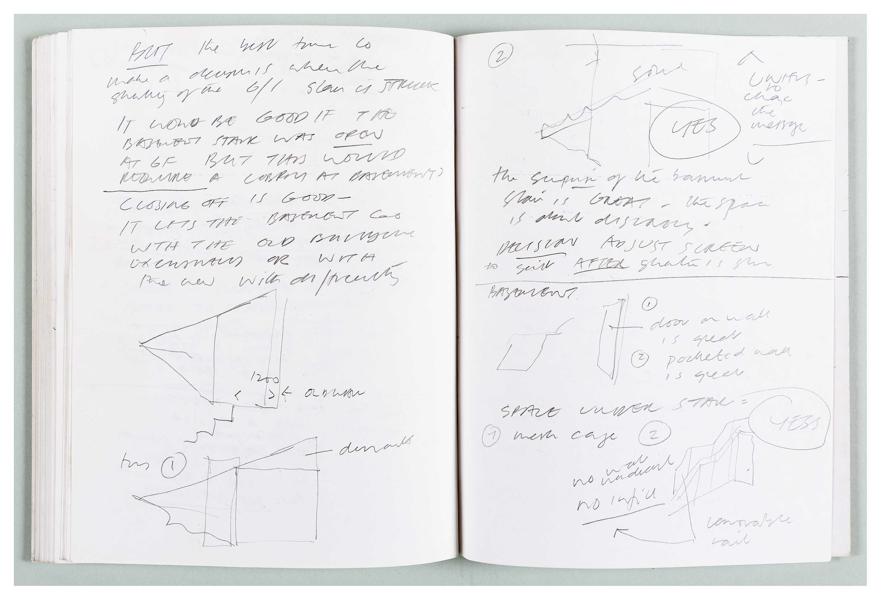 BUT the best time to
make a decision is when the
shuttering of the G/1 stair is STRUCK
IT WOULD BE GOOD IF THE
BASEMENT STAIR WAS OPEN
AT GF BUT THIS WOULD
REQUIRE A LOBBY AT BASEMENT
CLOSING OFF IS GOOD –
IT LETS THE BASEMENT GO
WITH THE OLD BUILDING
EXCLUSIVELY OR WITH
the new with difficulty
1200
OLD WALL
this ①
②
solid
YES
to
change
the
message
the surprise of the basement
stair is GREAT – the space
is about discovery.
DECISION ADJUST SCREEN
to suit AFTER shutter is
BASEMENT
① door or wall
is great
② pocketed wall
is great
SPACE UNDER STAIR =
① mesh cage ②
YES
no wall
no infill
removable
rail